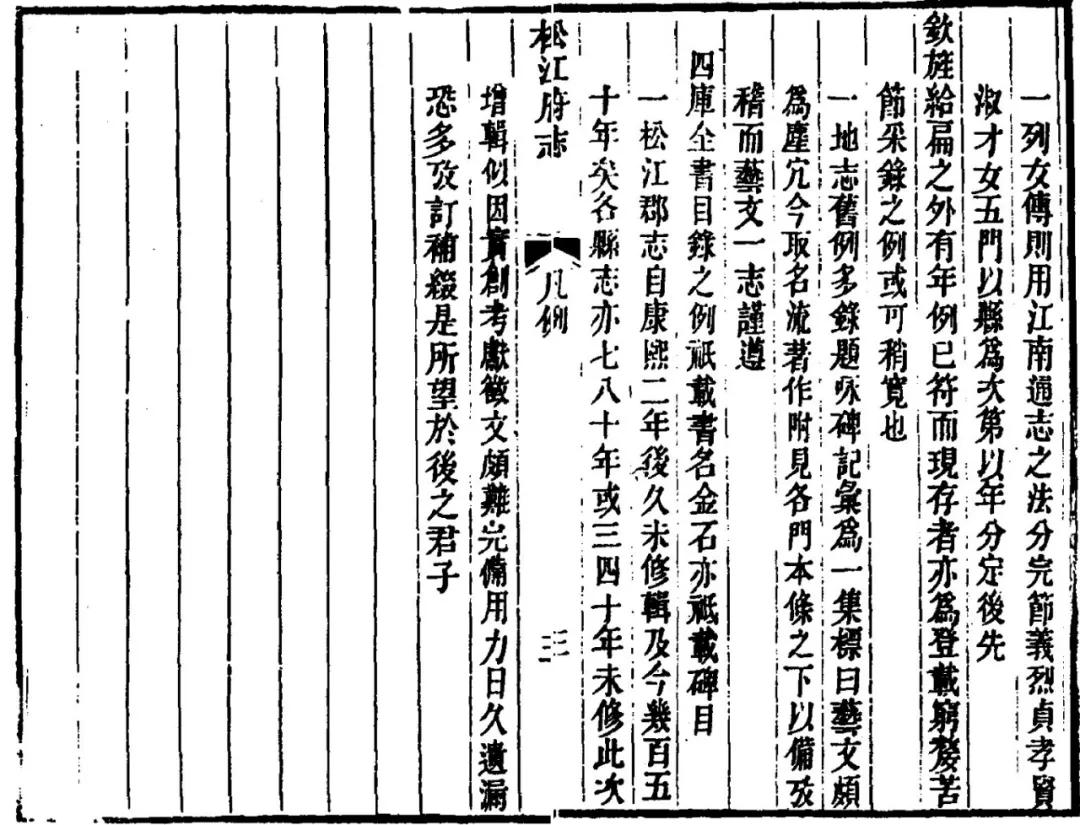 一列女傳則用江南通志之法分完節義烈貞孝賢
淑才女五門以縣為次第以年分定後先
欽旌給扁之外有年例已符而現存者亦為登載窮嫠苦
節采錄之例或可稍寬也
一地志舊例多錄題咏碑記彙為一集標曰藝文頗
為塵宂今取名流著作附見各門本條之下以備攷
稽而藝文一志謹遵
四庫全書目錄之例祇載書名金石亦祇載碑目
一松江郡志自康熙二年後久未修輯及今幾百五
十年矣各縣志亦七八十年或三四十年未修此次
松江府志
凡例
三
增輯似因實創考獻徵文頗難完備用力日久遺漏
恐多攷訂補綴是所望於後之君子